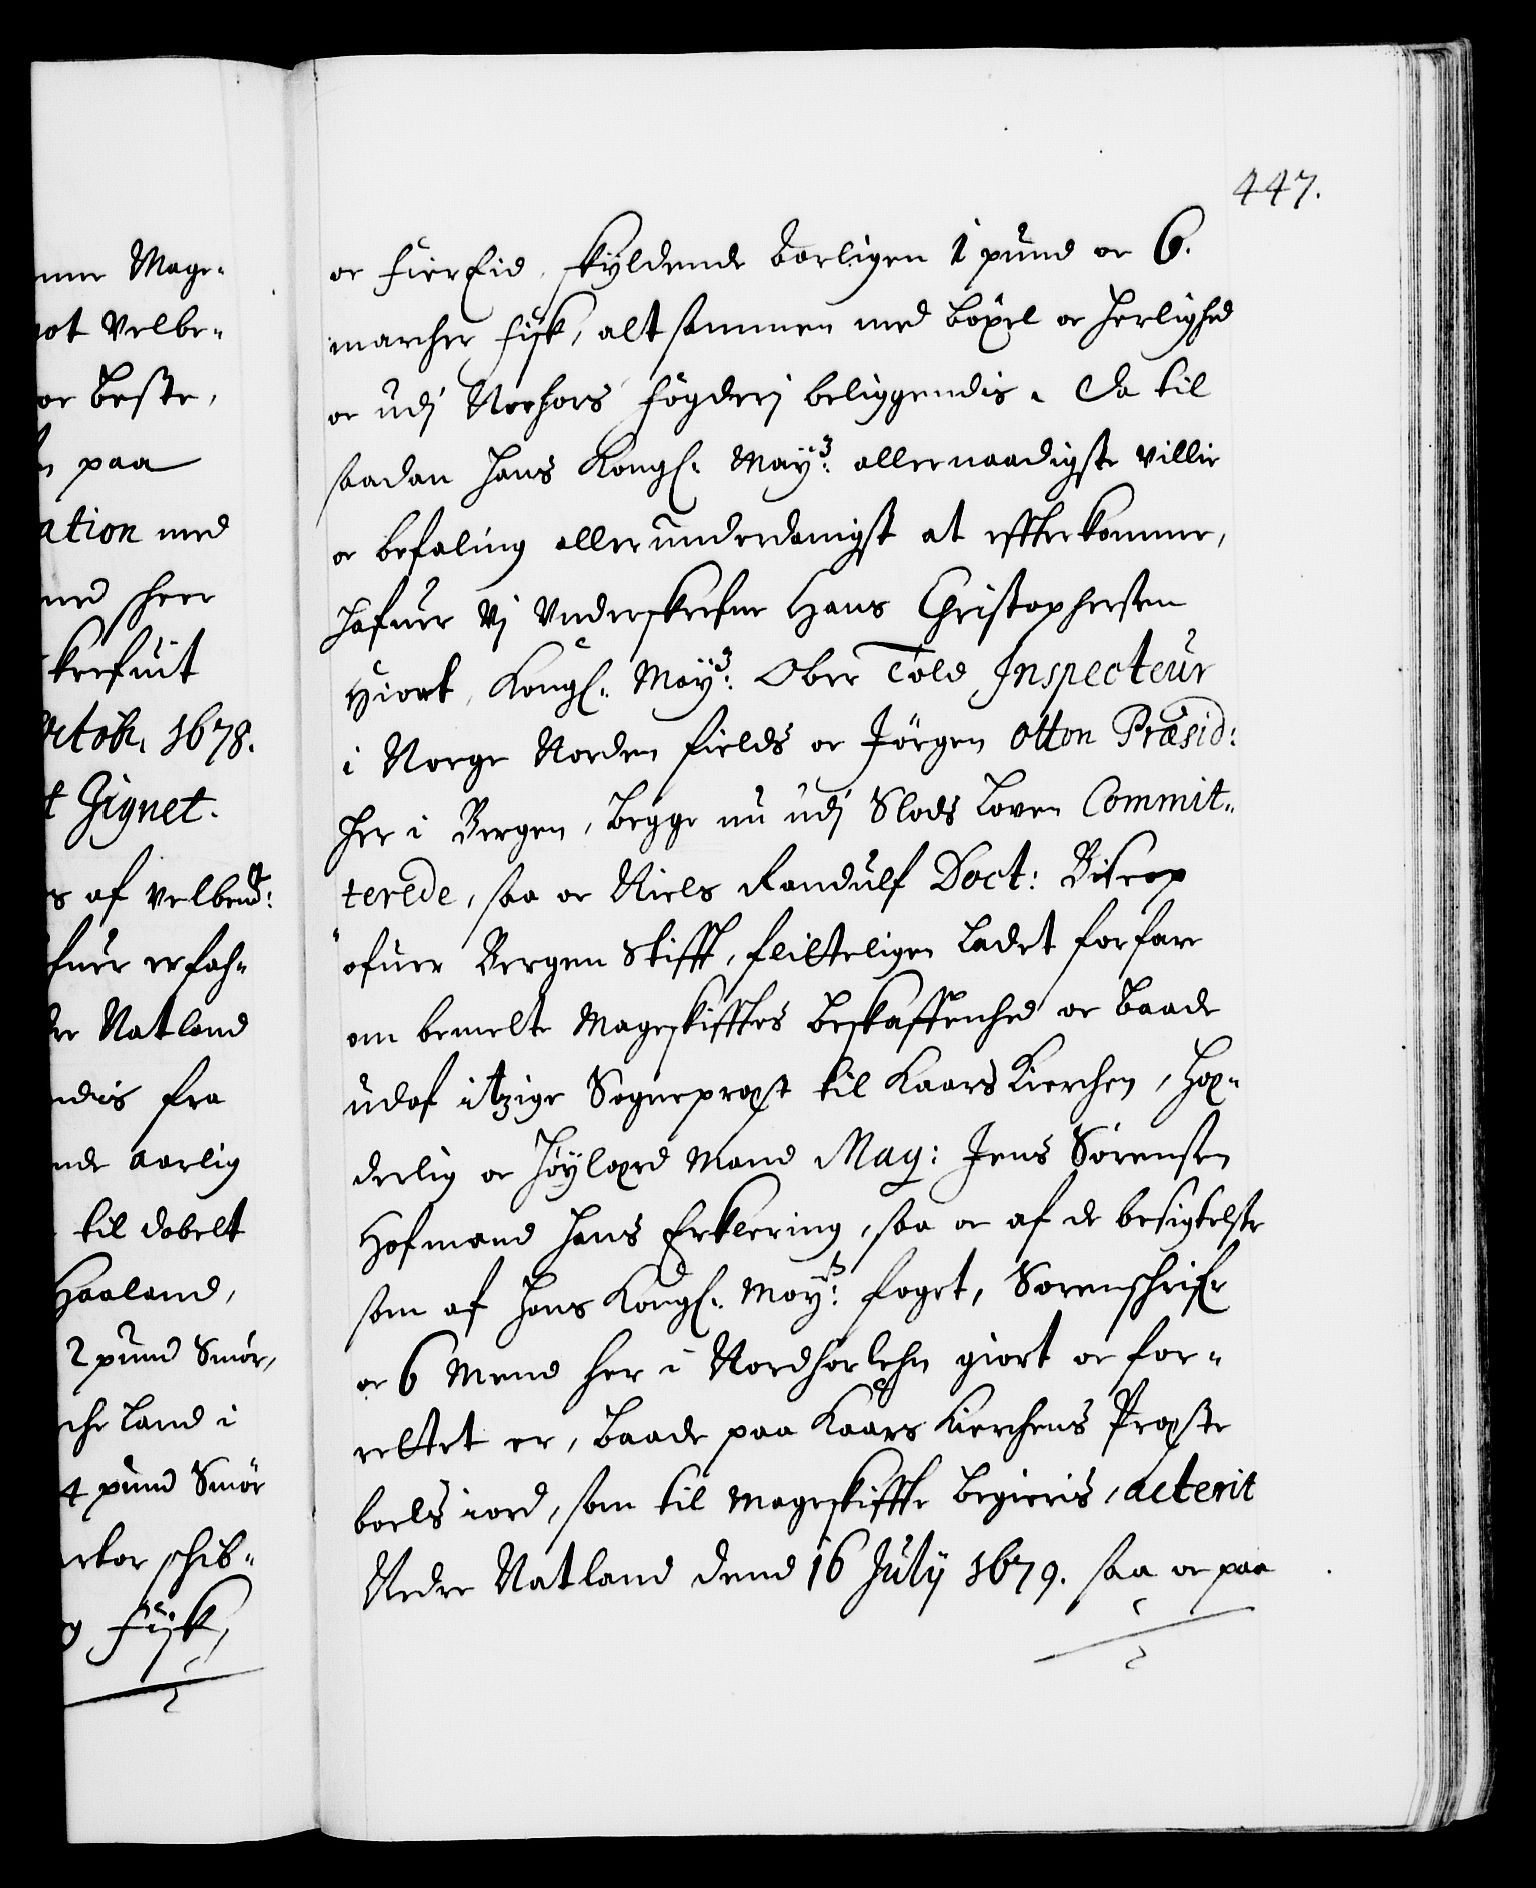 447.
nne Mage-
ot Velbe-
oc beste,
n paa
ation med
ned sheer
krefuit
Octob. 1678.
t Signet.
s af Velbend:
fuer erfah-
re Natland
ndis fra
nde aarlig
til dobelt
Haaland,
2 pund Smör,
che Land i
4 pund Smör
schib-
g Fisk,
oc Fiereid, skyldende aarligen 1 pund oc 6.
marcher Fisk, alt sammen med böxel oc herlighed
oc udj Norhors fögderj beliggendis. Da til
saadan Hans Kongl. May: allernaadigste villie
oc befaling allerunderdanigst at effterkomme,
Hafuer Vj Underskrefne Hans Christophersen
Hiort, Kongl. May: Ober Told Inspecteur
i Norge Norden fields oc Jörgen Otton Præsid:
her i Bergen, begge nu udj Slods Loven Commit-
terede, saa oc Niels Randulf Doct: Biscop
öfuer Bergen Stifft, flitteligen Ladet forfare
om bemelte Mageskifftes beskaffenhed oc baade
udaf itzige Sogneprest til Kaars Kierchen, Hæ-
derlig oc Höylærd Mand Mag: Jens Sörensen
Hofmand hans Erklering, saa oc af de besigtelse
som af Hans Kongl. May: foget, Sorenschrifr
oc 6 Mend her i Nordhorlehn giort oc for-
rettet er, baade paa Kaars Kierchens Præste
boels iord, som til Mageskiffte begieris, acterit
Nedre Natland dend 16 July 1679. saa oc paa